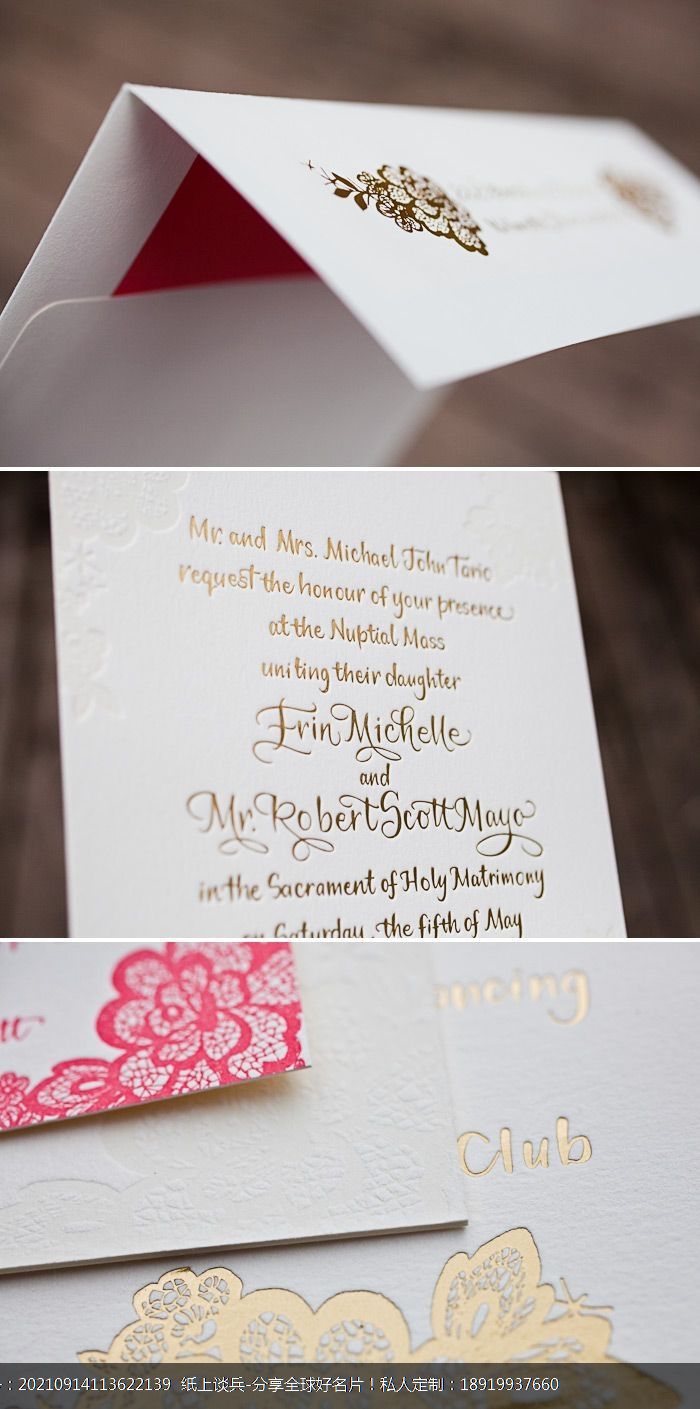 Mr. and Mrs. Michael John Tario
request the honour of your presence
at the Nuptial Mass
uniting their daughter
Erin Michelle
and
Mr. Robert Scott Mayo
in the Sacrament of Holy Matrimony
on Saturday, the fifth of May
Club
：20210914113622139 纸上谈兵-分享全球好名片！私人定制：18919937660